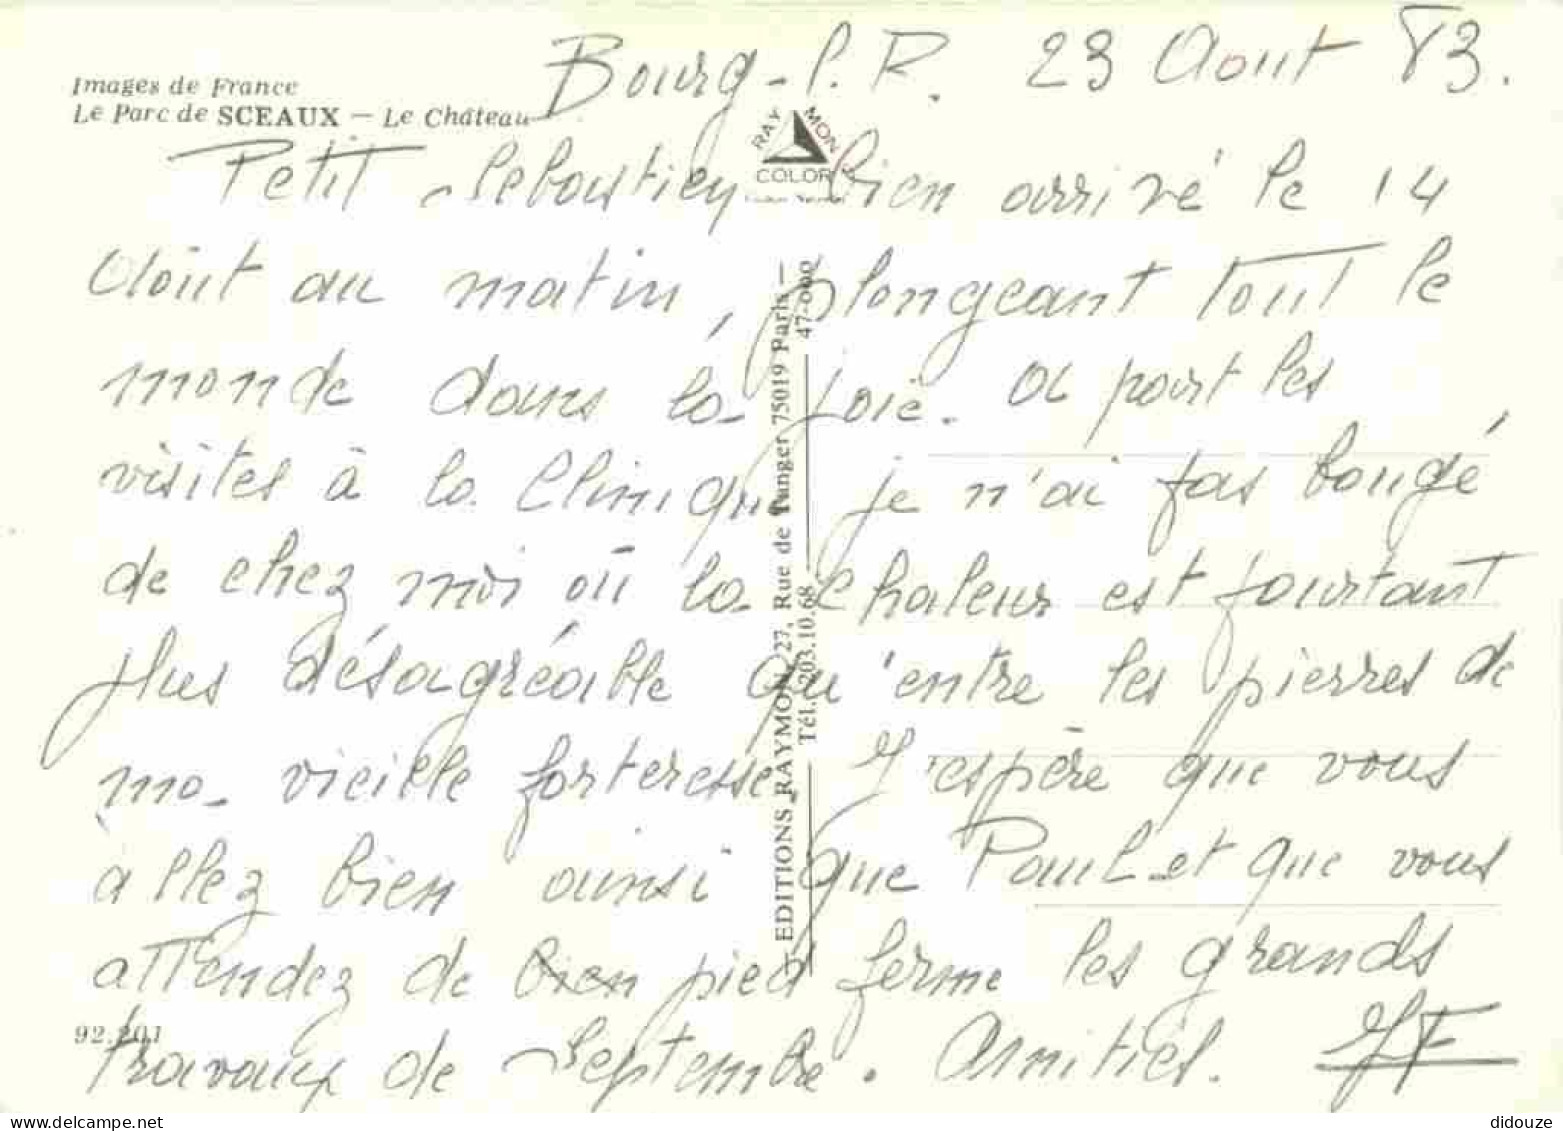 Images de France
Le Parc de SCEAUX — Le Château
Bourg-l.R. 23 Aout 83.
RAYMON
COLOR
Petit Sebastien bien arrivé le 14
Août au matin, plongeant tout le
monde dans la joie. A part les
visites à la Clinique je n'ai pas bougé
de chez moi où la chaleur est pourtant
plus désagréable qu'entre les pierres de
ma vieille forteresse. J'espère que vous
allez bien ainsi que Paul et que vous
attendez de bien pied ferme les grands
travaux de Septembre. Amitiés. JF
EDITIONS RAYMON 27, Rue de Tanger 75019 Paris —
Tél. 203.10.68 47-000
92.201
www.delcampe.net
didouze